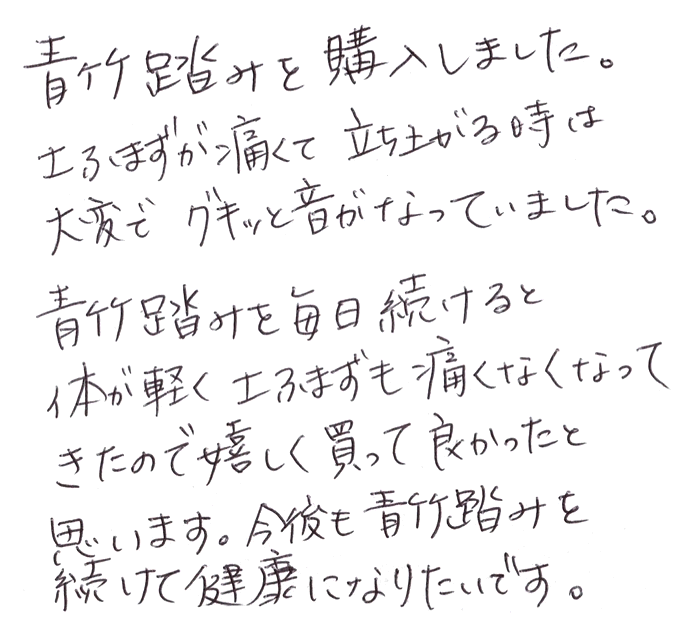 青竹踏みを購入しました。
土ふまずが痛くて 立ち上がる時は
大変で グキッと音がなっていました。
青竹踏みを毎日続けると
体が軽く 土ふまずも痛くなくなって
きたので嬉しく買って良かったと
思います。今後も青竹踏みを
続けて健康になりたいです。